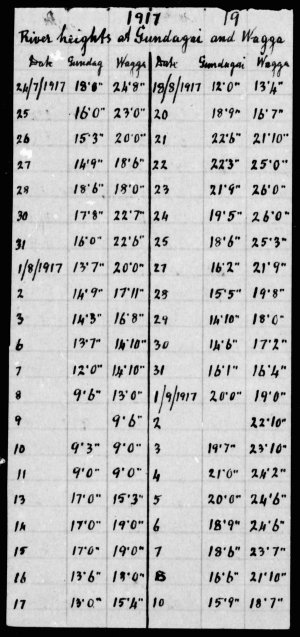 1917 19
River heights at Gundagai and Wagga
Date Gundag Wagga Date Gundagai Wagga
24/7/1917 18'6" 24'8" 18/8/1917 12'0" 13'4"
25 16'0" 23'0" 20 18'9" 16'7"
26 15'3" 20'0" 21 22'6" 21'10"
27 14'9" 18'6" 22 22'3" 25'0"
28 18'6" 18'0" 23 21'9" 26'0"
30 17'8" 22'7" 24 19'5" 26'0"
31 16'0" 22'6" 25 18'6" 25'3"
1/8/1917 13'7" 20'0" 27 16'2" 21'9"
2 14'9" 17'11" 28 15'5" 19'8"
3 14'3" 16'8" 29 14'10" 18'0"
6 13'7" 14'10" 30 14'6" 17'2"
7 12'0" 14'10" 31 16'1" 16'4"
8 9'6" 13'0" 1/9/1917 20'0" 19'0"
9 9'6" 2 22'10"
10 9'3" 9'0" 3 19'7" 23'10"
11 9'0" 9'0" 4 21'0" 24'2"
13 17'0" 15'3" 5 20'0" 24'6"
14 17'0" 19'0" 6 18'9" 24'6"
15 17'0" 19'0" 7 18'6" 23'7"
16 13'6" 18'0" 8 16'6" 21'10"
17 13'0" 15'4" 10 15'9" 18'7"